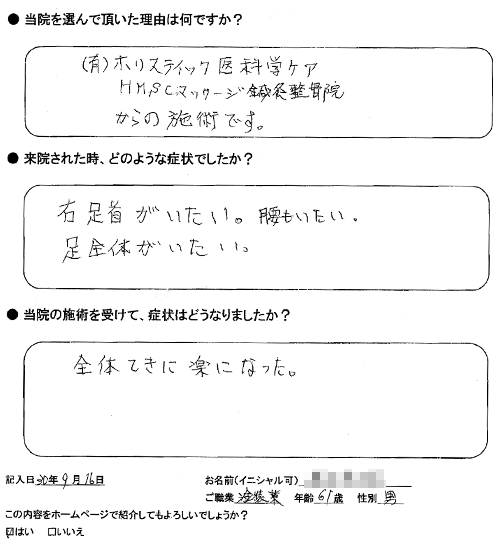 ● 当院を選んで頂いた理由は何ですか？
(有)ホリスティック医科学ケア
HMSCマッサージ鍼灸整骨院
からの施術です。
● 来院された時、どのような症状でしたか？
右足首がいたい。腰もいたい。
足全体がいたい。
● 当院の施術を受けて、症状はどうなりましたか？
全体てきに楽になった。
記入日30年9月16日 お名前(イニシャル可)
ご職業 塗装業 年齢 61歳 性別 男
この内容をホームページで紹介してもよろしいでしょうか？
☑はい □いいえ